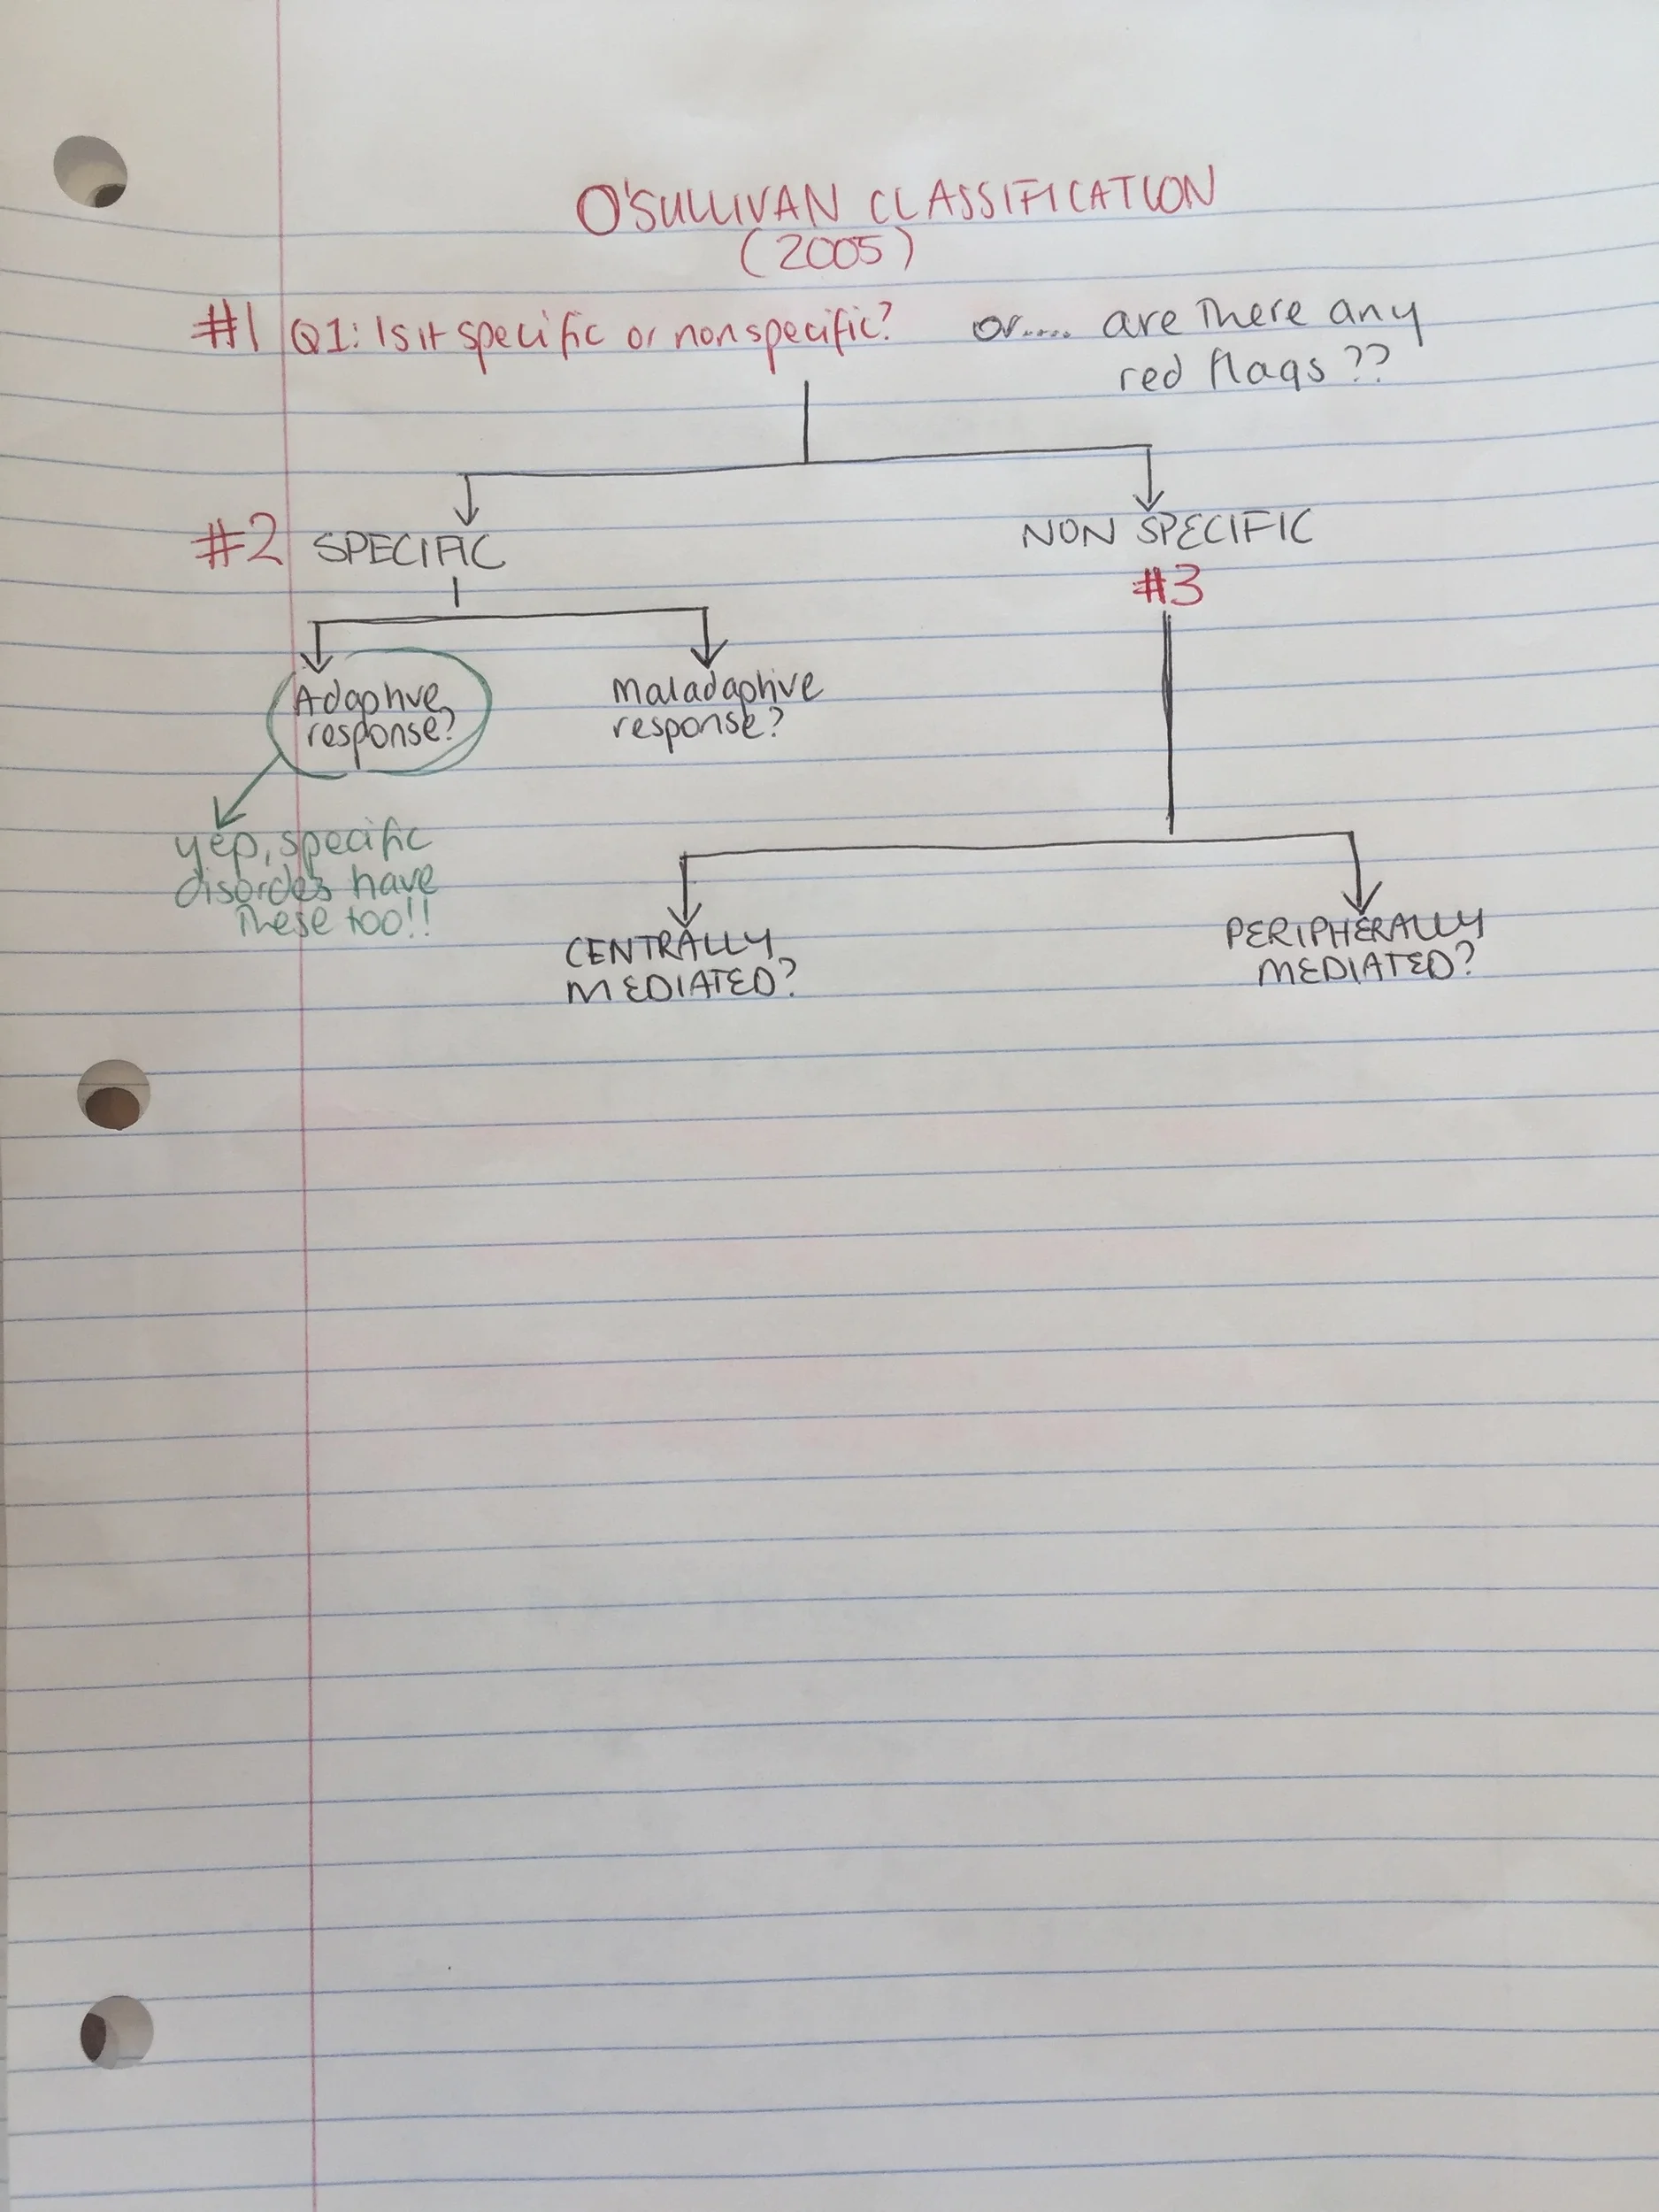 O'SULLIVAN CLASSIFICATION
(2005)
#1 Q1: Is it specific or nonspecific? or..... are there any
red flags??
#2 SPECIFIC
NON SPECIFIC
#3
Adaptive
response?
Maladaptive
response?
yep, specific
disordes have
these too!!
CENTRALLY
MEDIATED?
PERIPHERALLY
MEDIATED?